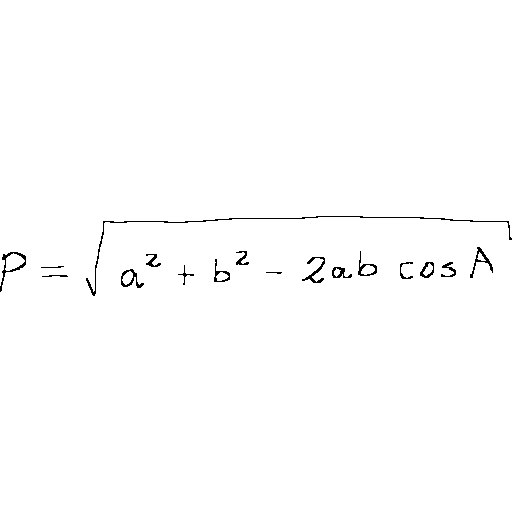 P = √(a² + b² - 2ab cos A)